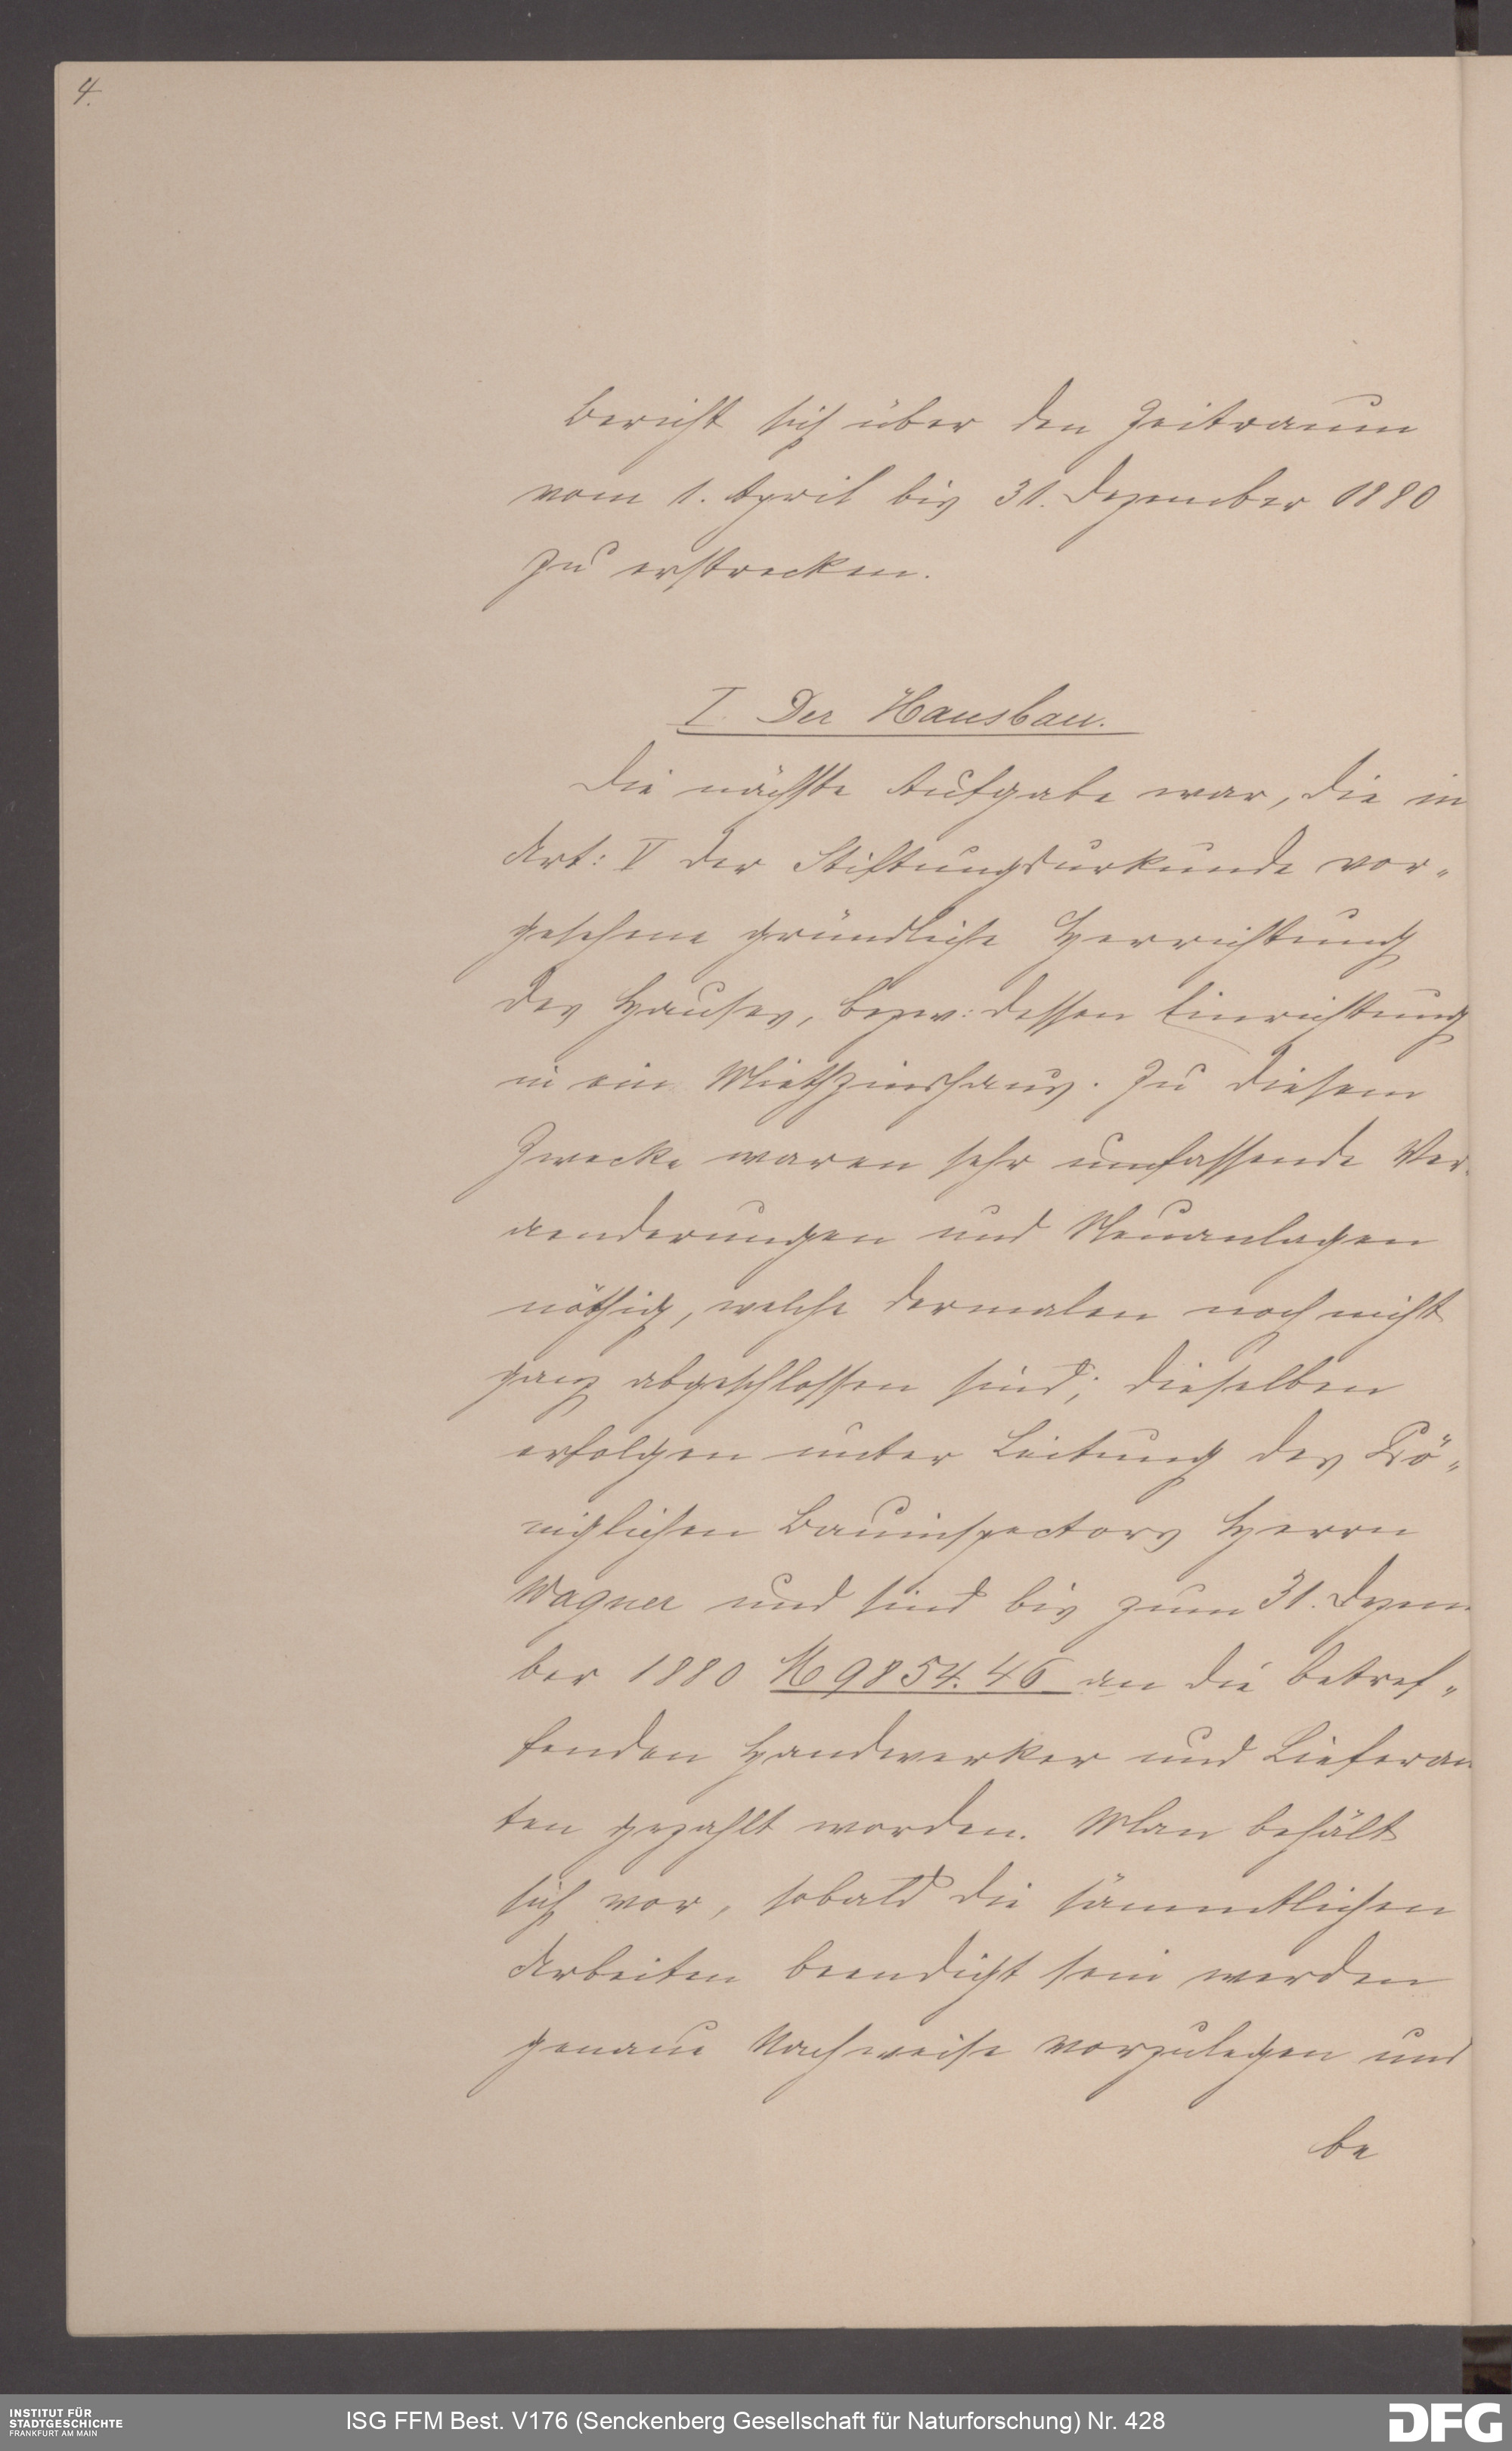 4.
Bericht sich über den Zeitraum
vom 1. April bis 31. Dezember 1880
zu erstrecken.
I. Der Hausbau.
Die nächste Aufgabe war, die in
Art: V der Stiftungsurkunde vor„
gesehene gründliche Herrichtung
des Hauses, bezw: dessen Einrichtung
in ein Miethzinshaus. Zu diesem
Zwecke waren sehr umfassende Ver„
aenderungen und Neuanlagen
nöthig, welche dermalen noch nicht
ganz abgeschlossen sind; dieselben
erfolgen unter Leitung des Kö„
niglichen Bauinspectors Herrn
Wagner und sind bis zum 31. Dezem
ber 1880 M 9854.46 an die betref„
fenden Handwerker und Lieferan
ten gezahlt worden. Man behält
sich vor, sobald die sämmtlichen
Arbeiten beendigt sein werden
genaue Nachweise vorzulegen und
be
INSTITUT FÜR
STADTGESCHICHTE
FRANKFURT AM MAIN
ISG FFM Best. V176 (Senckenberg Gesellschaft für Naturforschung) Nr. 428
DFG